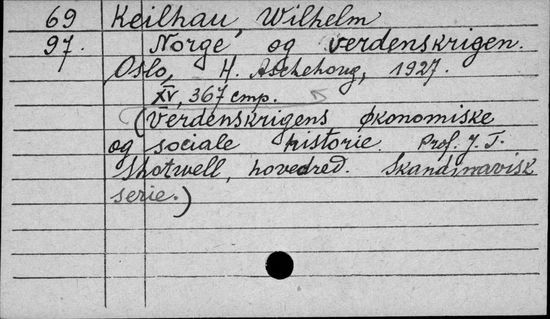 69 Keilhau, Wilhelm
97. Norge og verdenskrigen.
Oslo, H. Aschehoug, 1927.
XV, 367 стр.
(Verdenskrigens økonomiske
og sociale historie. Prof. J. T.
Shotwell, hovedred. Skandinavisk
serie.)